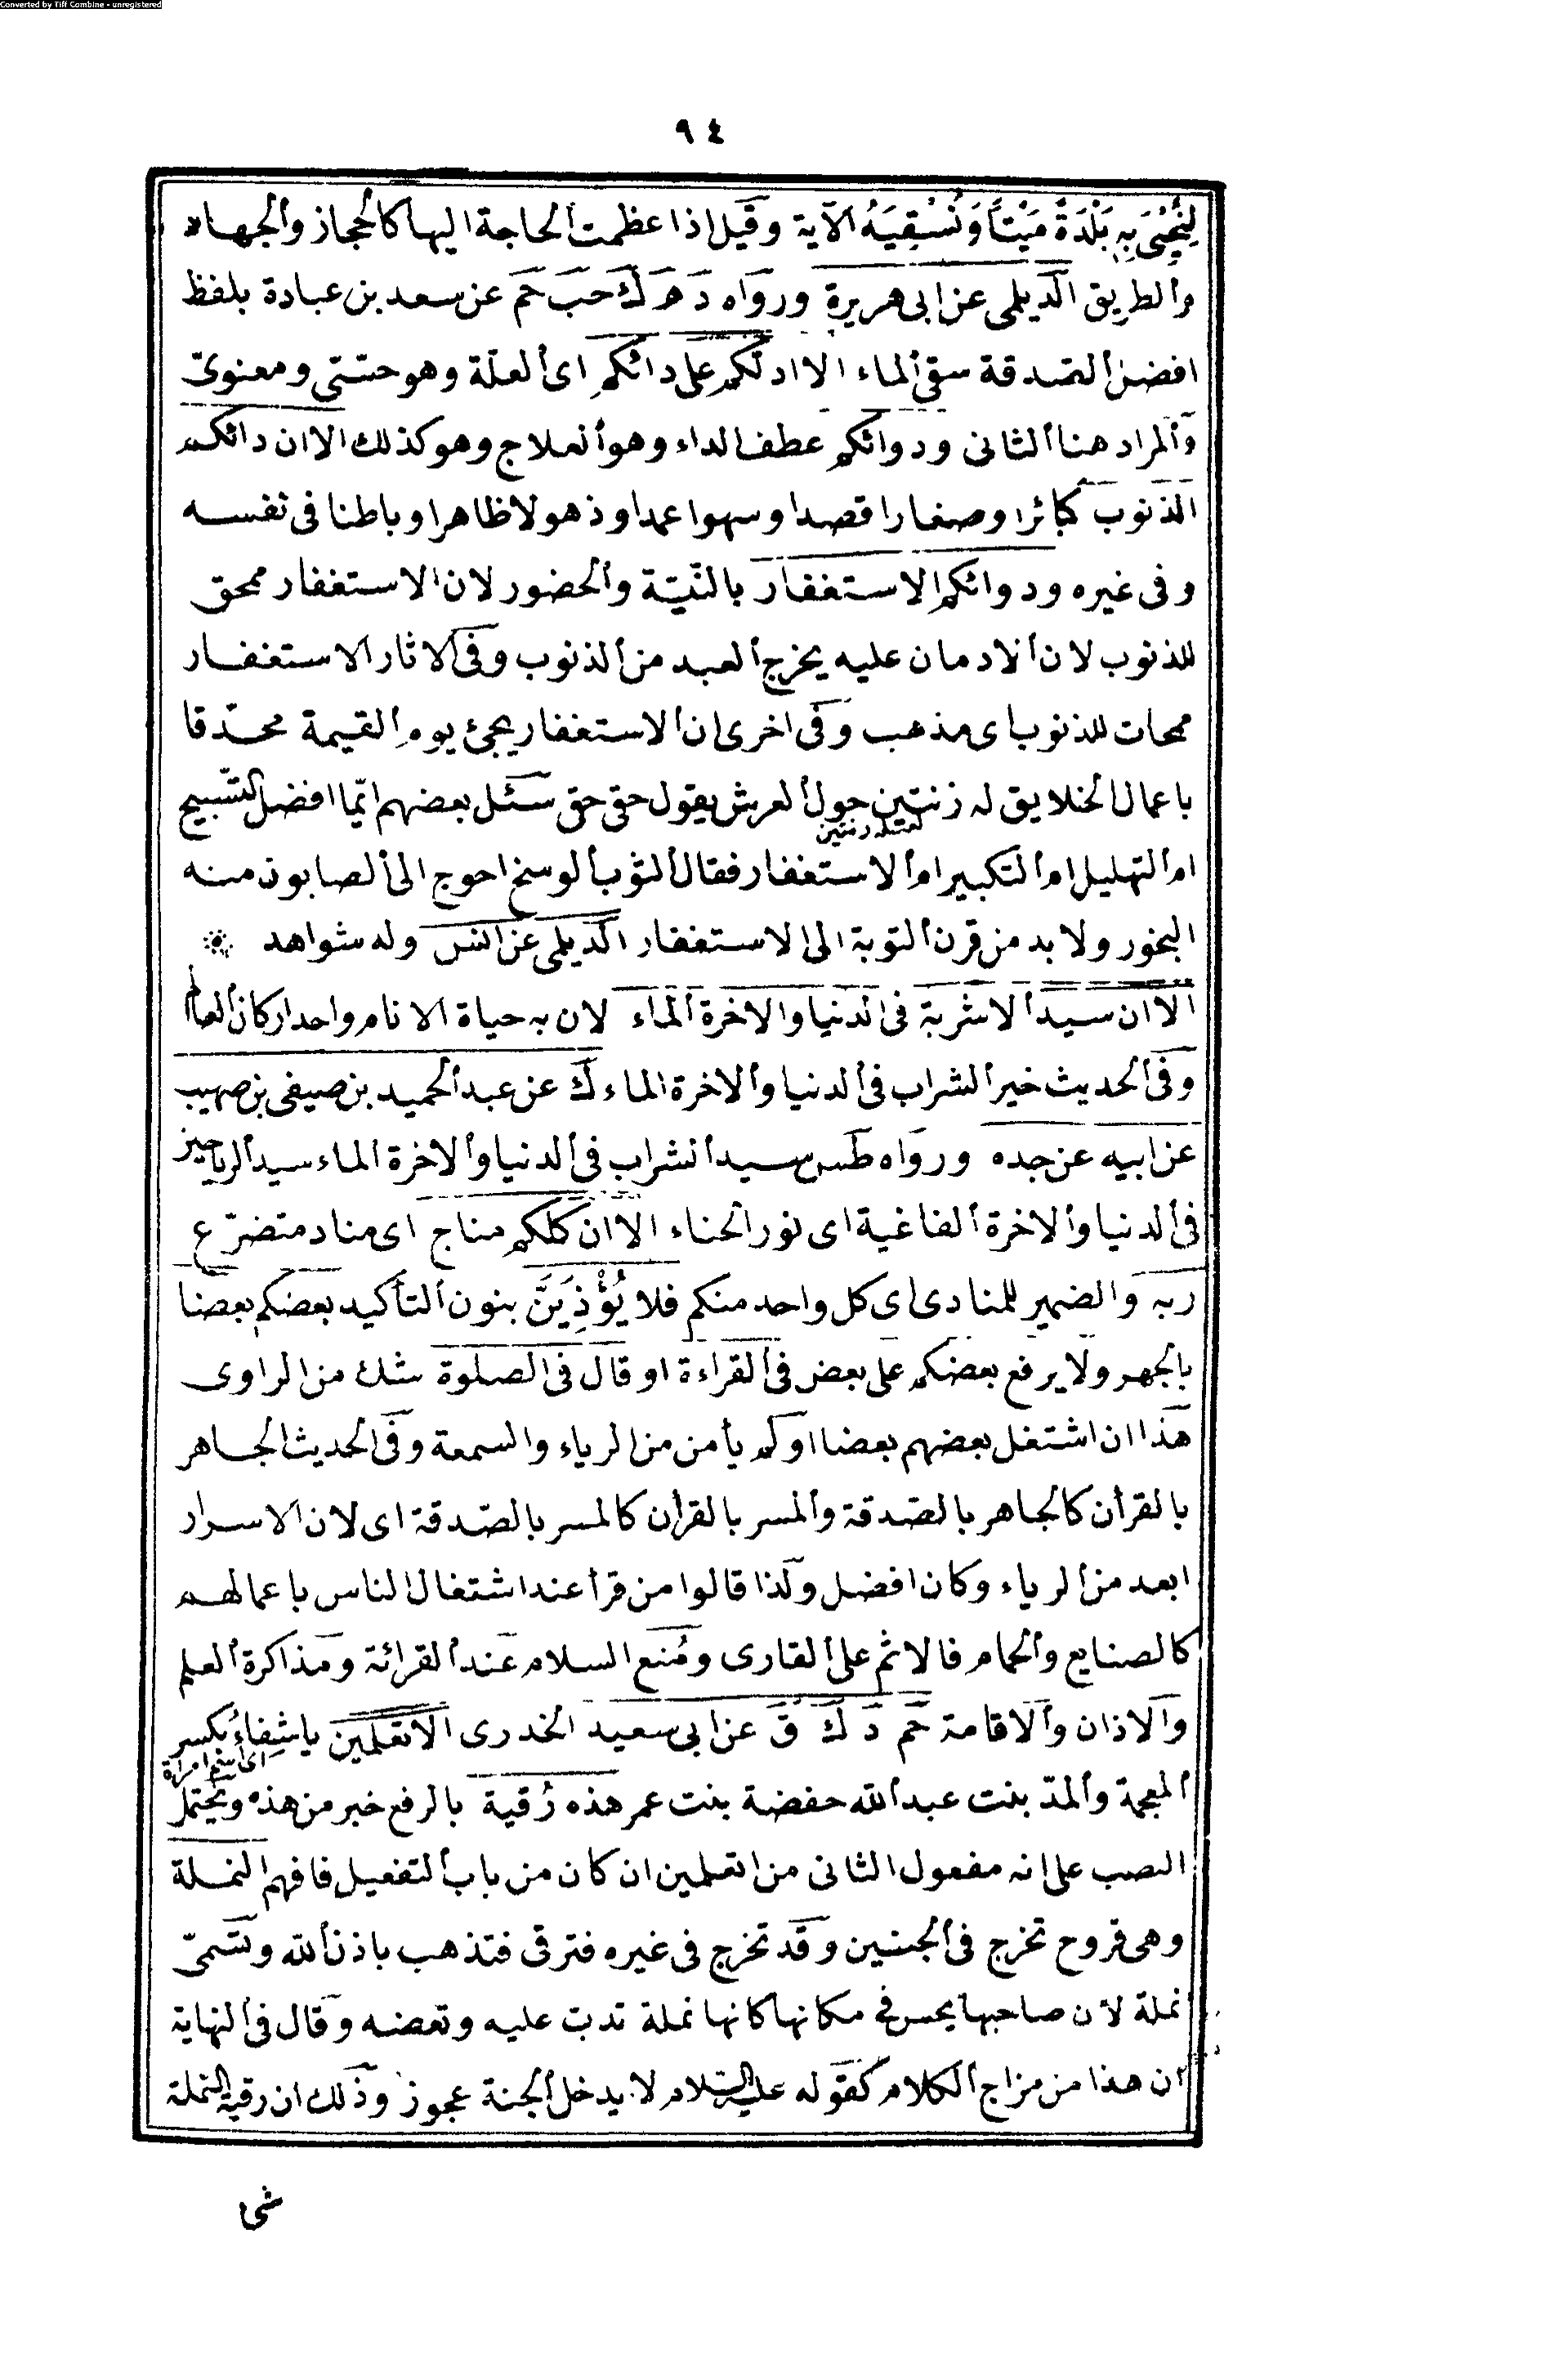 Converted by Tiff Combine - unregistered
٩٤
لِنُحْيِيَ بِهِ بَلْدَةً مَيْتاً وَنُسْقِيَهُ الآية وقيل اذا عظمت الحاجة اليها كالحجاز والجهاد
والطريق الديلمى عن ابى هريرة ورواه د ه ك حب حم عن سعد بن عبادة بلفظ
افضل الصدقة سقى الماء الا ادلكم على دائكم اى العلّة وهو حسّى ومعنوىّ
والمراد هنا الثانى ودوائكم عطف لداء وهو العلاج وهو كذلك الا ان دائكم
الذنوب كبائرا وصغارا قصدا وسهوا عمدا وذهولا ظاهرا وباطنا فى نفسه
وفى غيره ودوائكم الاستغفار بالنّيّة والحضور لان الاستغفار ممحق
للذنوب لان الادمان عليه يخرج العبد من الذنوب وفى الاثار الاستغفار
ممحات للذنوب اى مذهب وفى اخرى ان الاستغفار يجئ يوم القيمة محدّقا
باعمال الخلايق له زنتين حول العرش يقول حقى حقى سئل بعضهم ايّما افضل التّسبيح
ام التهليل ام التكبير ام الاستغفار فقال الثوب الوسخ احوج الى الصابون منه
البخور ولا بد من قرن التوبة الى الاستغفار الديلمى عن انس وله شواهد
الا ان سيد الاشربة فى الدنيا والاخرة الماء لان به حياة الانام واحد اركان العالم
وفى الحديث خير الشراب فى الدنيا والاخرة الماء ك عن عبد الحميد بن صيفى بن صهيب
عن ابيه عن جده ورواه طس سيد الشراب فى الدنيا والاخرة الماء سيد الرياحين
فى الدنيا والاخرة الفاغية اى نور الحناء الا ان كلكم مناج اى مناد متضرّع
ربه والضمير للمنادى اى كل واحد منكم فلا يُؤْذِيَنَّ بنون التأكيد بعضكم بعضا
بالجهر ولا يرفع بعضكم على بعض فى القراءة او قال فى الصلوة شك من الراوى
هذا ان اشتغل بعضهم بعضا او لم يأمن من الرياء والسمعة وفى الحديث الجاهر
بالقرأن كالجاهر بالصّدقة والمسر بالقرأن كالمسر بالصّدقة اى لان الاسرار
ابعد من الرياء وكان افضل ولذا قالوا من قرأ عند اشتغال الناس باعمالهم
كالصنايع والحمام فالاثم على القارى ومُنع السلام عند القرائة ومذاكرة العلم
والاذان والاقامة حم د ك ق عن ابى سعيد الخدرى الا تعلمين ياشِفاءُ بكسر
اى اسم امرأة
المعجمة والمدّ بنت عبد الله حفضة بنت عمر هذه رُقية بالرفع خبر من هذه ويحتمل
النصب على انه مفعول الثانى من اتعلمين ان كان من باب التفعيل فافهم النملة
وهى قروح تخرج فى الجنبين وقد تخرج فى غيره فترقى فتذهب باذن الله وتسمّى
نملة لان صاحبها يحس فى مكانها كانها نملة تدبّ عليه وتعضه وقال فى النهاية
ان هذا من مزاج الكلام كقوله عليه السّلام لا يدخل الجنة عجوز وذلك ان رقية النملة
شى